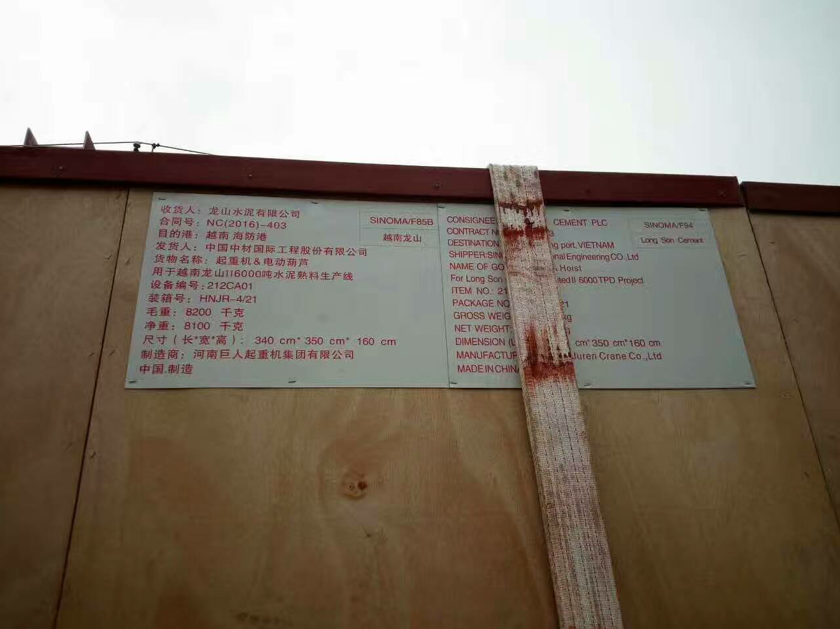 收货人：龙山水泥有限公司
合同号：NC(2016)-403
目的港：越南 海防港
发货人：中国中材国际工程股份有限公司
货物名称：起重机&电动葫芦
用于越南龙山II6000吨水泥熟料生产线
设备编号:212CA01
装箱号：HNJR-4/21
毛重：8200 千克
净重：8100 千克
尺寸（长*宽*高）：340 cm* 350 cm* 160 cm
制造商：河南巨人起重机集团有限公司
中国.制造
SINOMA/F85B
越南龙山
CONSIGNEE CEMENT PLC
CONTRACT
DESTINATION port, VIETNAM
SHIPPER:SIN Engineering CO.,Ltd
NAME OF & Hoist
For Long Son II 6000 TPD Project
ITEM NO.: 21
PACKAGE NO 21
GROSS
NET WEIGHT
DIMENSION cm*350 cm*160 cm
MANUFACTUR Juren Crane Co.,Ltd
MADE IN CHINA
SINOMA/F94
Long Son Cement